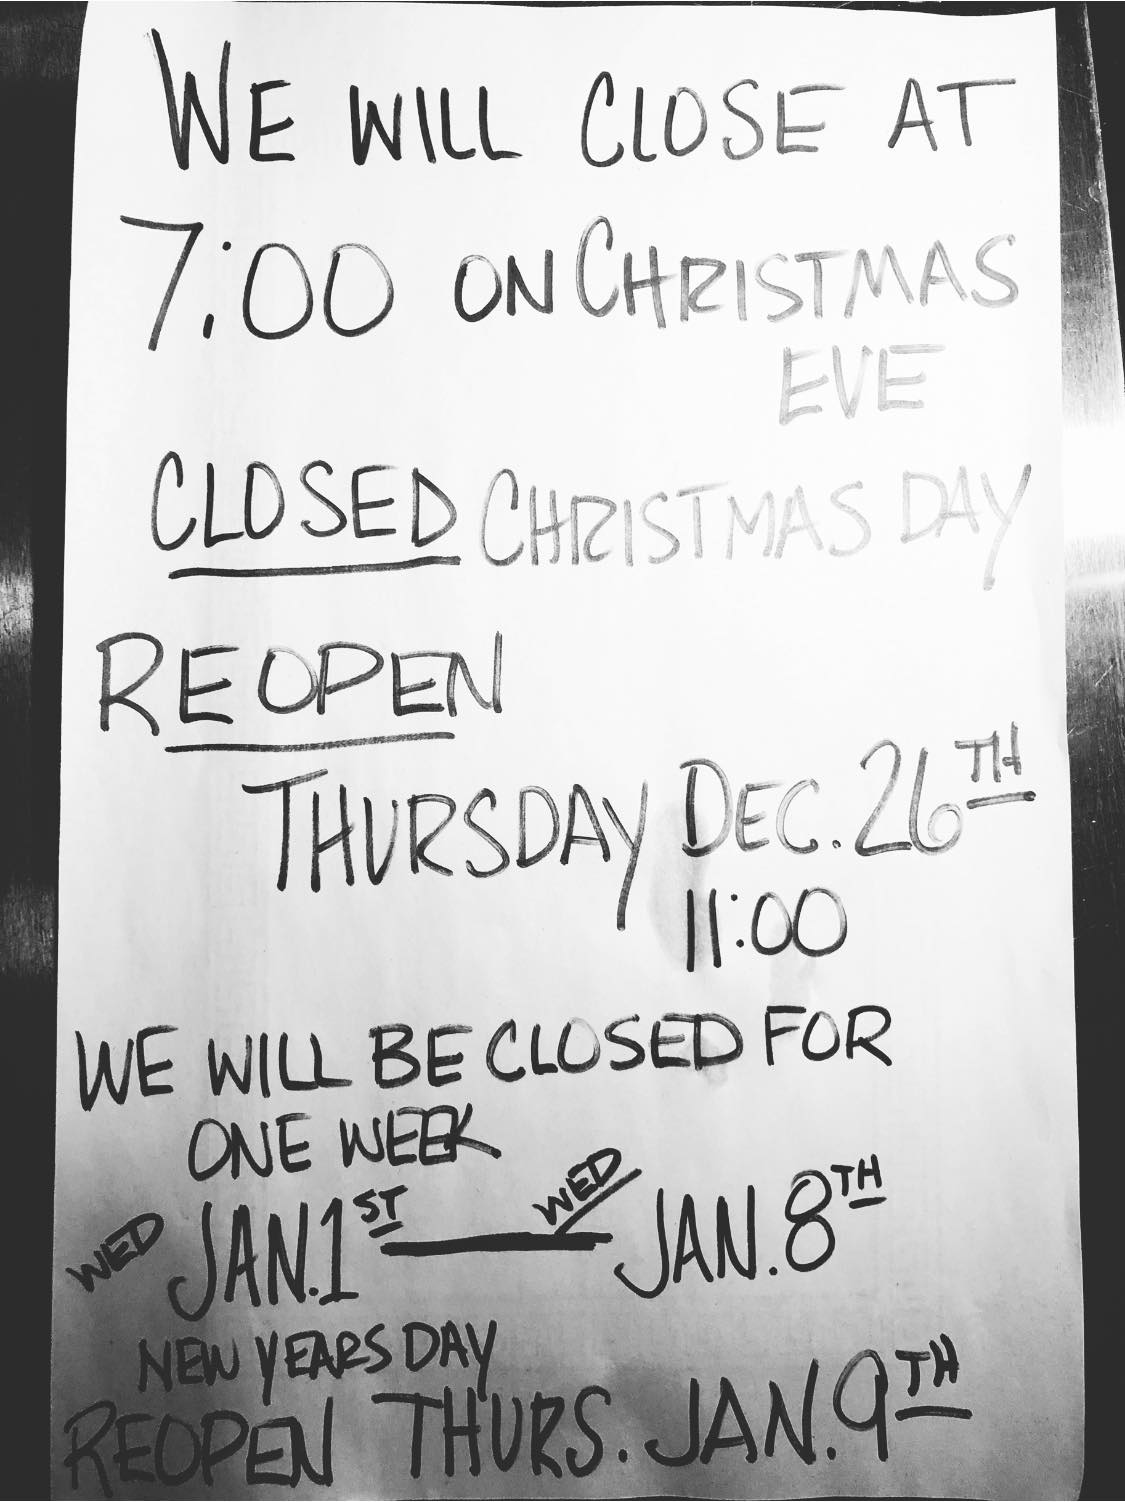 WE WILL CLOSE AT
7:00 ON CHRISTMAS
EVE
CLOSED CHRISTMAS DAY
REOPEN
THURSDAY DEC. 26TH
11:00
WE WILL BE CLOSED FOR
ONE WEEK
WED JAN. 1ST — WED JAN. 8TH
NEW YEARS DAY
REOPEN THURS. JAN. 9TH